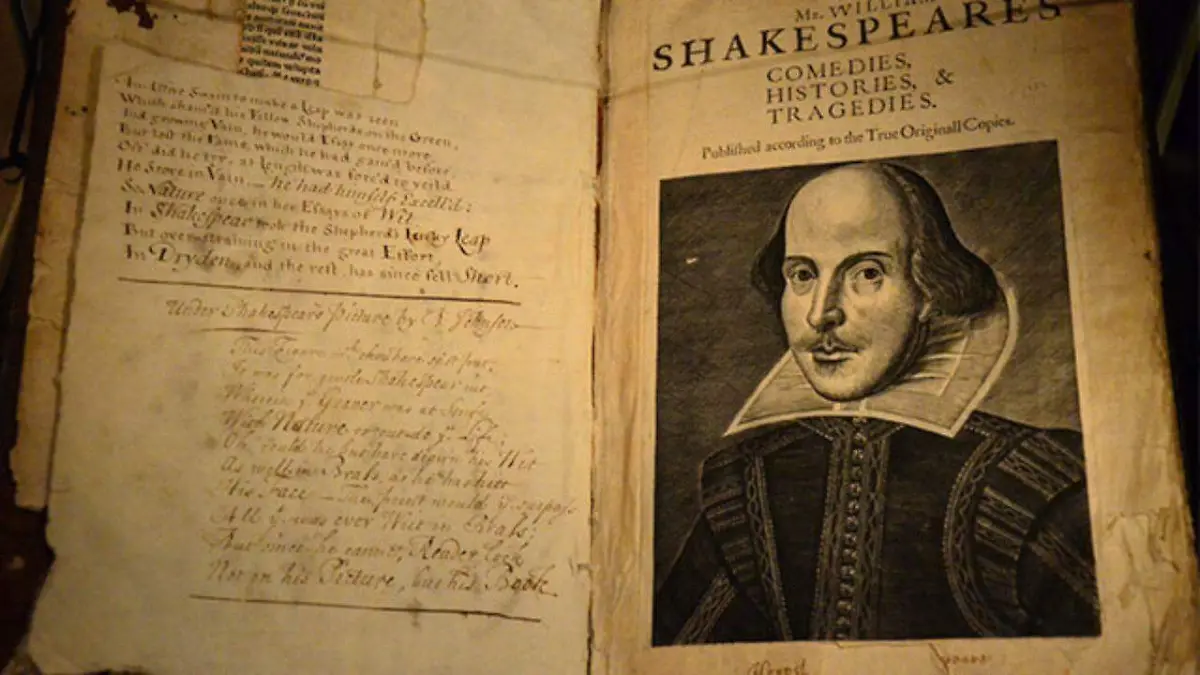 Swain to make a Leap was seen
Which sham'd his Fellow Shepherds on the Green,
And growing Vain, he would Essay once more,
But lost the Fame, which he had gain'd before,
Oft' did he try, at Length was forc'd to yeild
He Strove in Vain, — he had himself Excell'd:
So Nature once in her Essays of Wit
In Shakespear took the Shepherd's Lucky Leap
But over-straining in the great Effort,
In Dryden, and the rest, has since fell Short.
Under Shakespears Picture by Johnson
This Figure here put,
It was for gentle Shakespear cut
Wherein yᵉ Graver was at
With Nature to outdo yᵉ Life;
Oh could he but have drawn his Wit
As well in Brass, as he has hitt
His Face — The print would yⁿ surpass
All yᵗ was ever Writ in Brass;
But since he cannot, Reader look
Not on his Picture, but his Book.
Mr. WILLIAM
SHAKESPEARES
COMEDIES,
HISTORIES, &
TRAGEDIES.
Published according to the True Originall Copies.